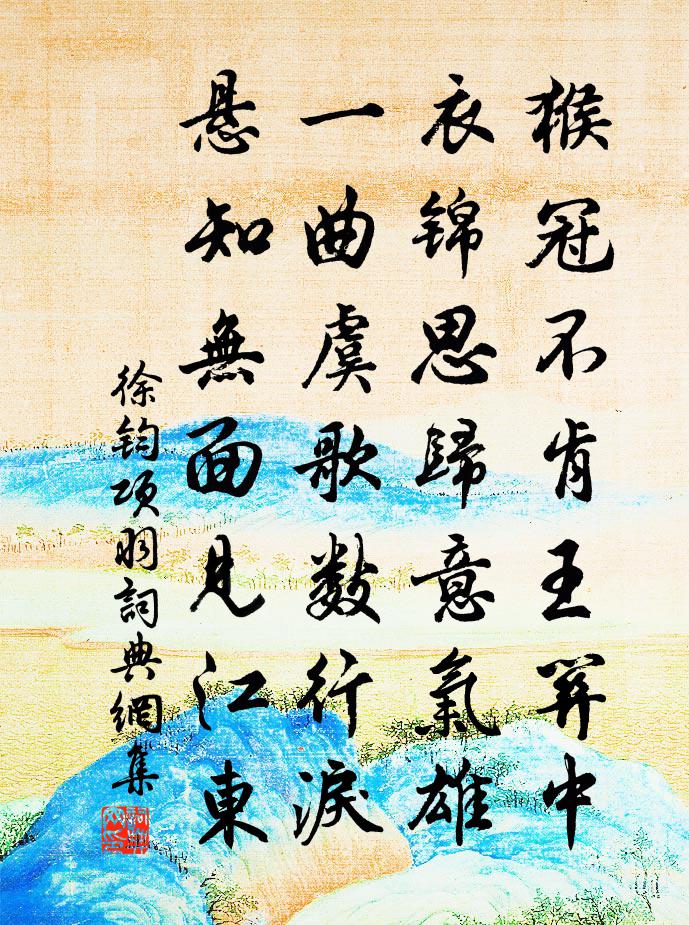 猴冠不肯王關中
衣錦思歸意氣雄
一曲虞歌數行淚
懸知無面見江東
徐鈞項羽詞典網集